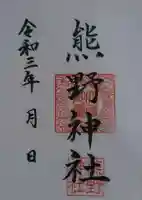 熊野神社
令和三年 月 日